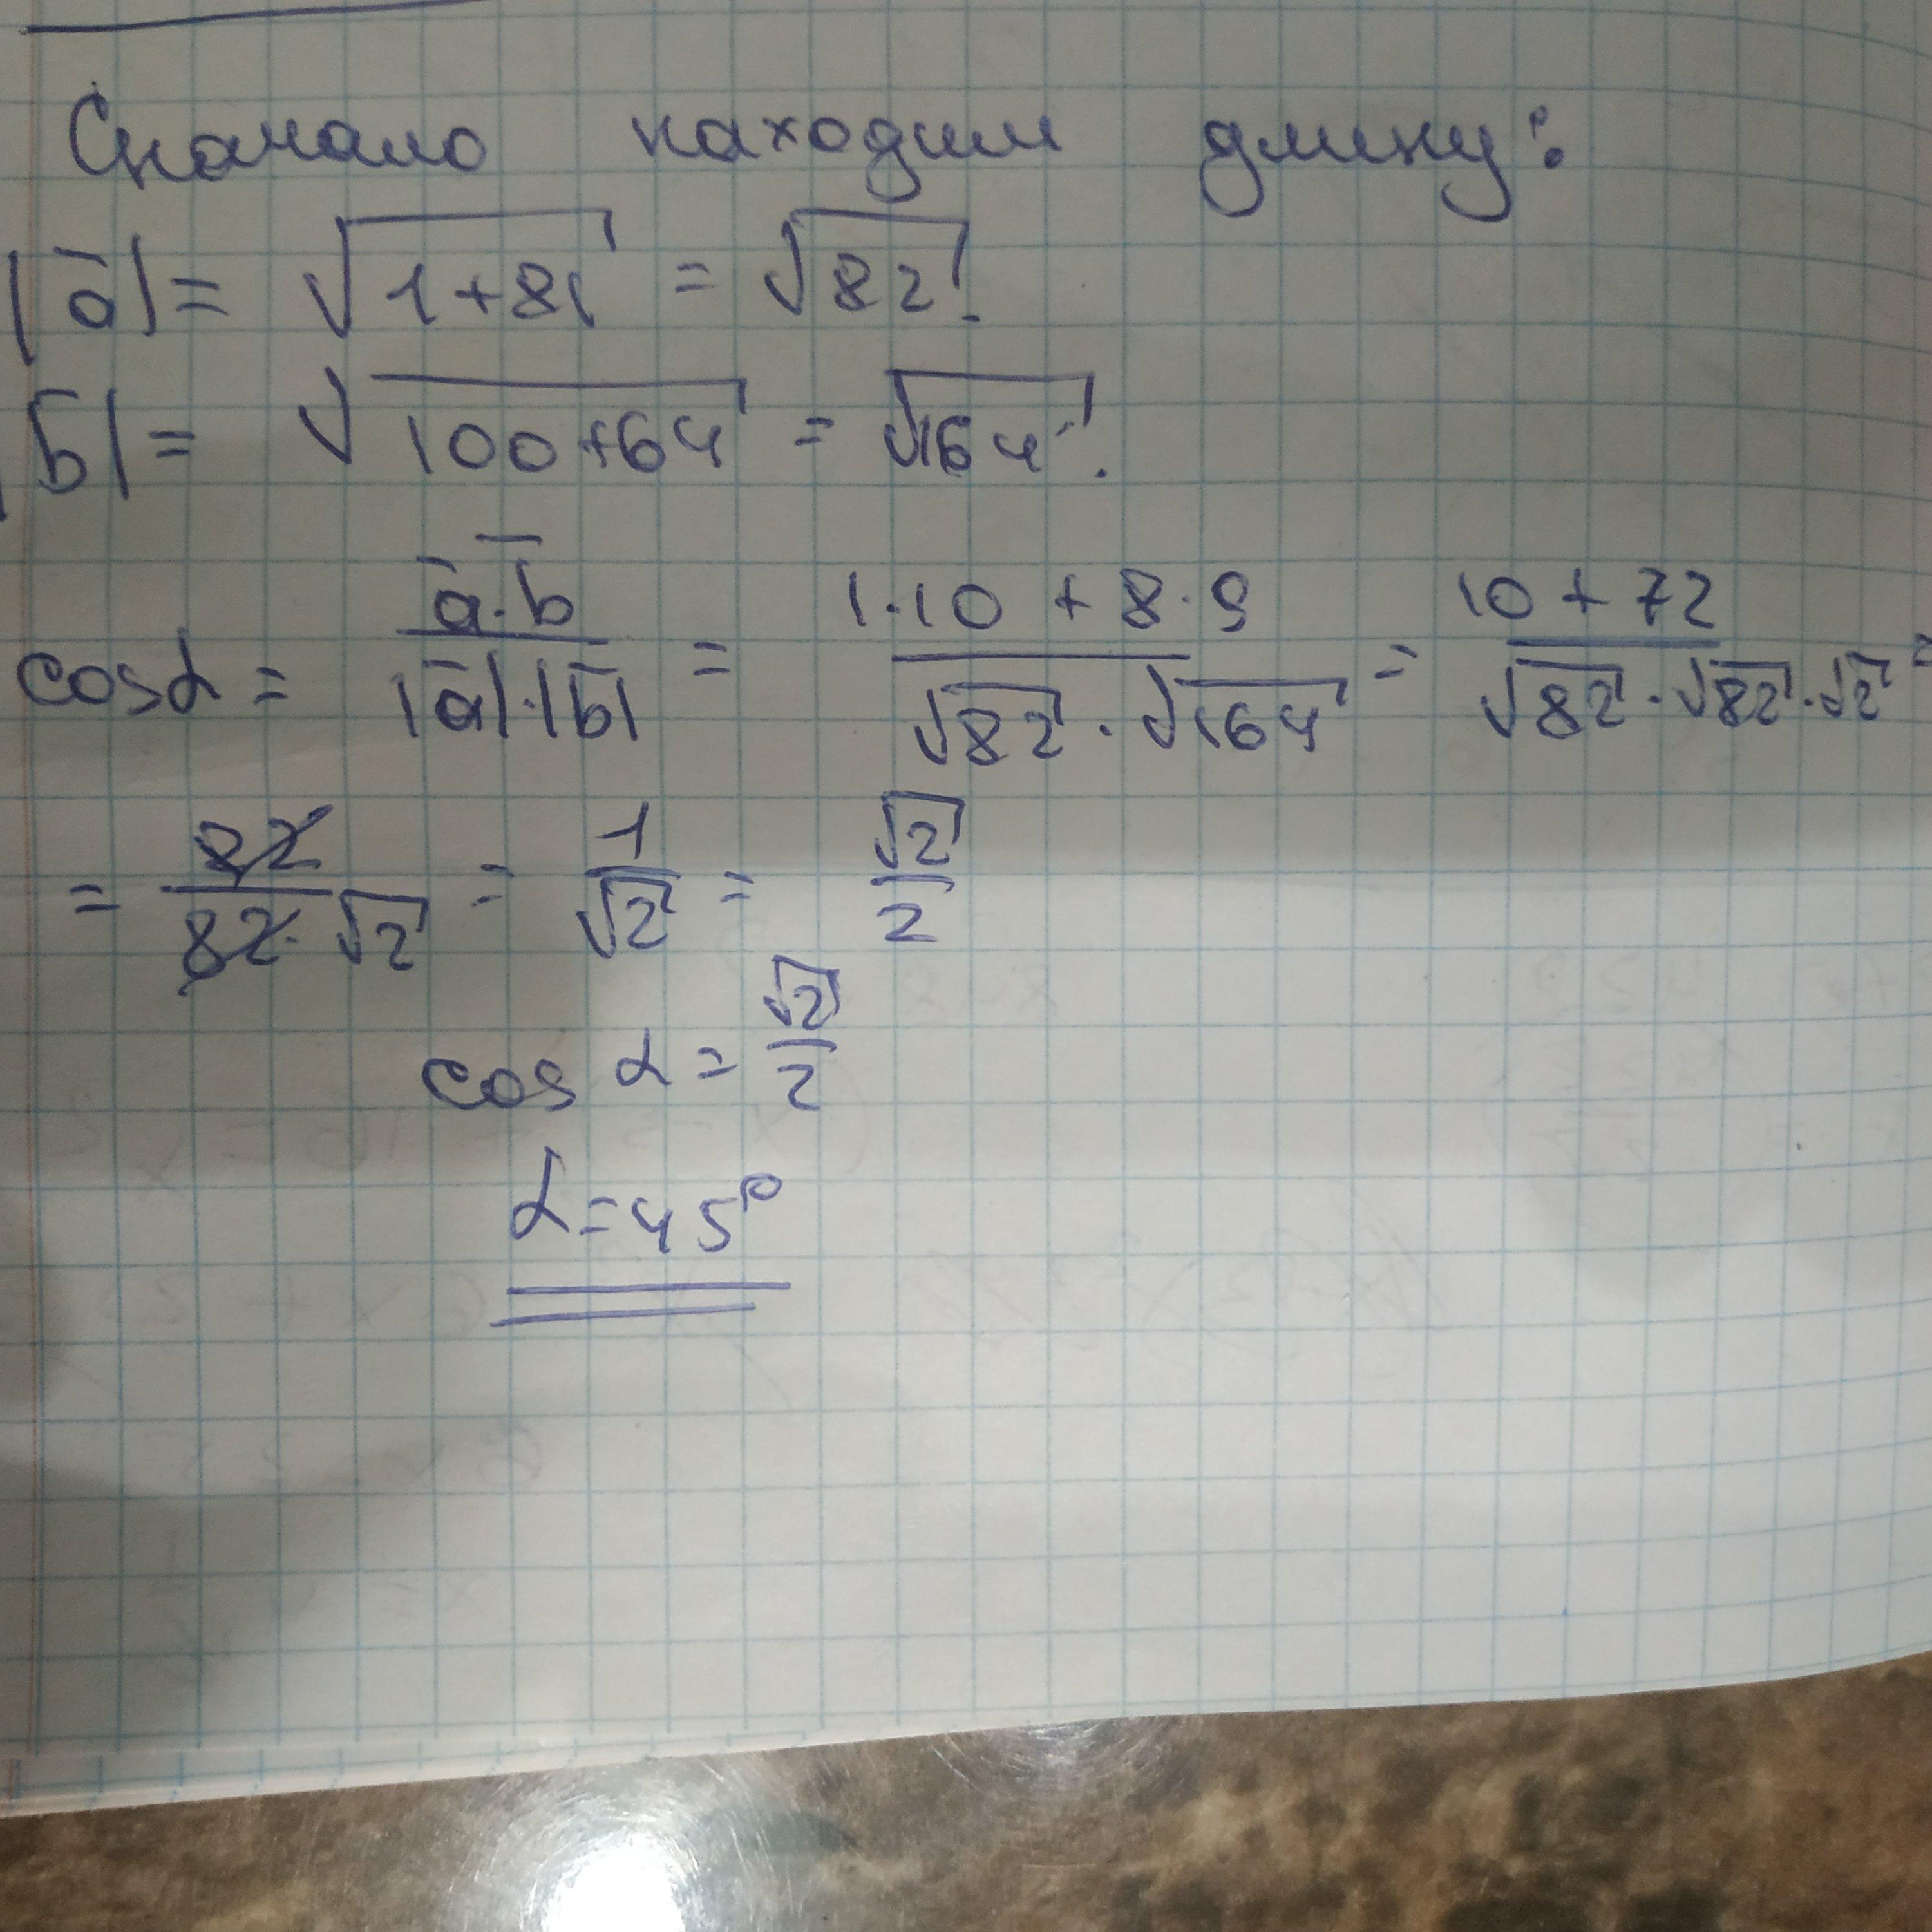 Сначало находим длину:
|a̅| = √(1+81) = √82.
|b̅| = √(100+64) = √164.
cos α = (a̅·b̅)/(|a̅|·|b̅|) = (1·10 + 8·9)/(√82·√164) = (10+72)/(√82·√82·√2) =
= 82/(82·√2) = 1/√2 = √2/2
cos α = √2/2
α = 45°